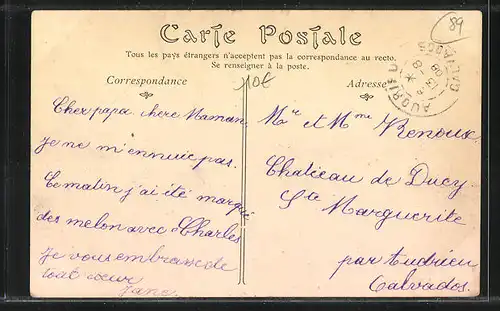 Carte Postale
Tous les pays étrangers n'acceptent pas la correspondance au recto.
Se renseigner à la poste.
Correspondance
Adresse
89
10€
AUDRIEU
CALVADOS
13 - 8
08
Cher papa chere Maman,
je ne m'ennuie pas.
Ce matin j'ai été marqué
des melon avec Charles
Je vous embrasse de
tout cœur
Jane.
Mr et Mme Renoux
Chateau de Ducy
Ste Marguerite
par Audrieu
Calvados.